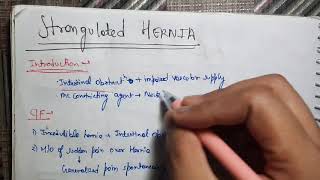 Strangulated HERNIA
Introduction →
Intestinal Obstruct^n + impaired vascular supply
mc constricting agent → Neck
C/F →
1) Irreducible hernia + Intestinal obs
2) H/O of sudden pain over Hernia
↓
Generalized pain spontaneo